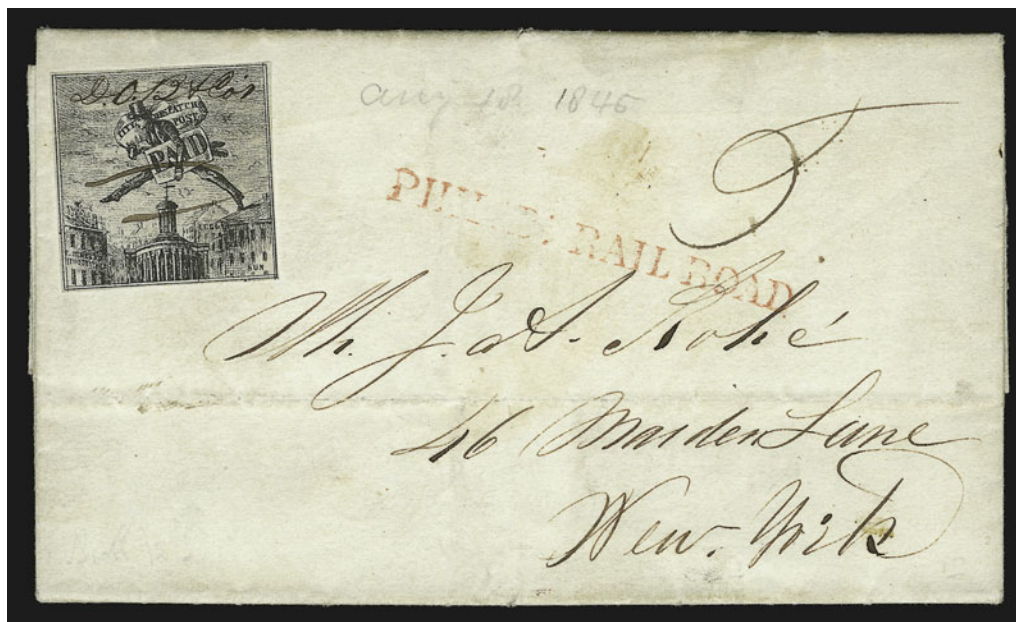 D.O.B & Co's
CITY DESPATCH
POST
PAID
SUN
Aug 18 1845
5
PHILAD. RAIL ROAD.
Mr. J. A. Rohé
46 Maiden Lane
New-York